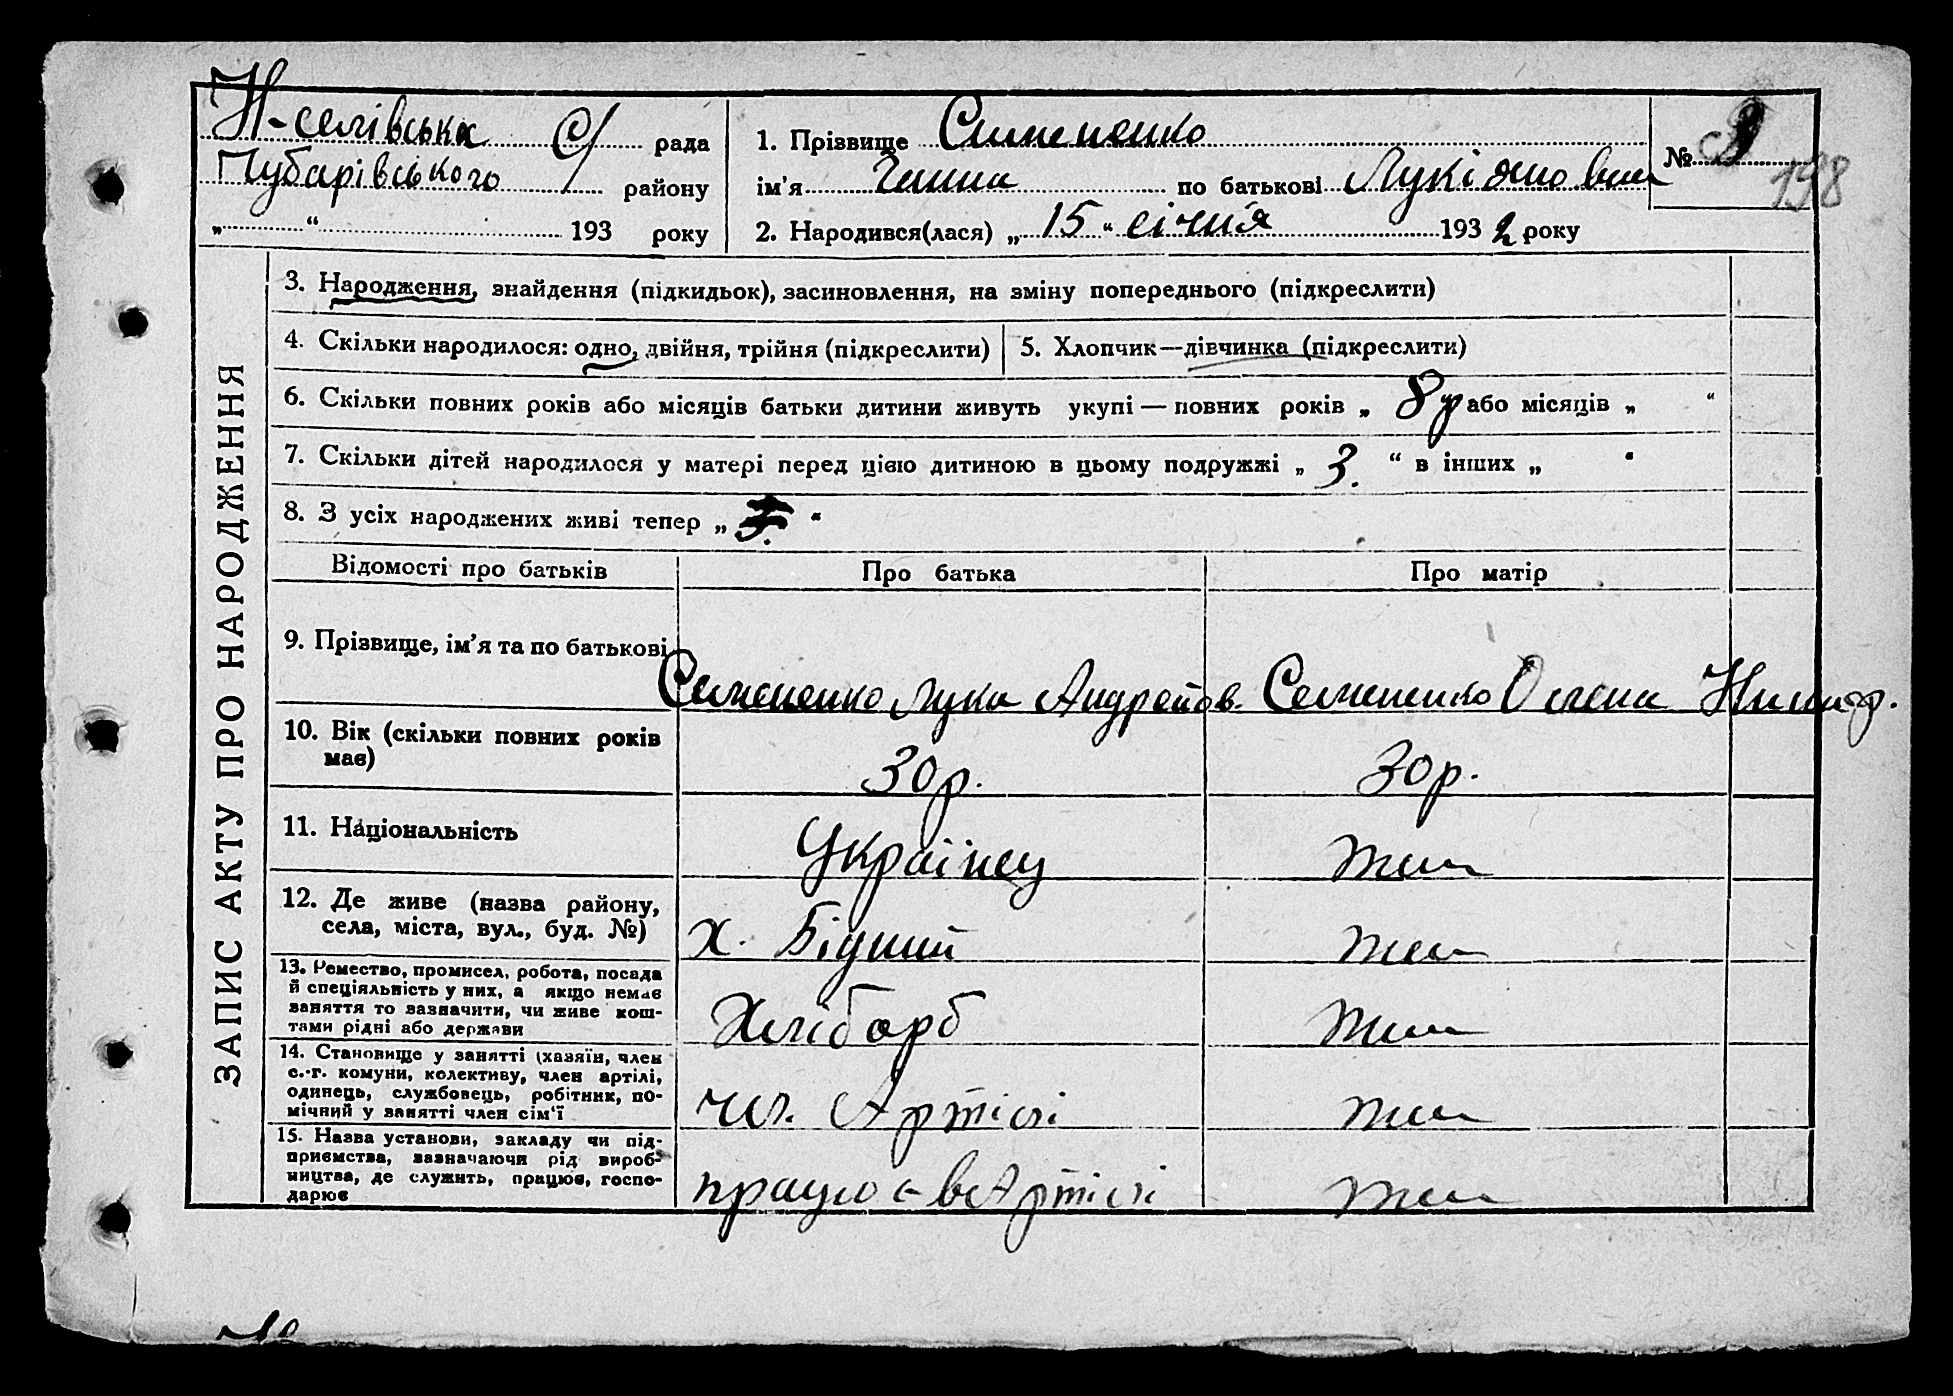 Н-селівська С/ рада
Пубарівського району
„ “ 193 року
1. Прізвище Симененко
ім’я Ганна по батькові Лукіяновна
2. Народився(лася) „ 15 “ січня 193 2 року
№ 3
198
ЗАПИС АКТУ ПРО НАРОДЖЕННЯ
3. Народження, знайдення (підкидьок), засиновлення, на зміну попереднього (підкреслити)
4. Скільки народилося: одно, двійня, трійня (підкреслити)
5. Хлопчик—дівчинка (підкреслити)
6. Скільки повних років або місяців батьки дитини живуть укупі — повних років „ 8 р або місяців „ “
7. Скільки дітей народилося у матері перед цією дитиною в цьому подружжі „ 3. “ в інших „ “
8. З усіх народжених живі тепер „ 3. “
Відомості про батьків Про батька Про матір
9. Прізвище, ім’я та по батькові
Семененко Лука Андрейов. Семененко Олена
10. Вік (скільки повних років
має)
30 р. 30 р.
11. Національність
Українец
12. Де живе (назва району,
села, міста, вул., буд. №)
х. Бідний
13. Ремество, промисел, робота, посада
й спеціяльність у них, а якщо немає
заняття то зазначити, чи живе кош-
тами рідні або держави
Хліборб
14. Становище у занятті (хазяїн, член
с.-г. комуни, колективу, член артілі,
одинець, службовець, робітник, по-
мічний у занятті член сім’ї
чл. Артілі
15. Назва установи, закладу чи під-
приємства, зазначаючи рід вироб-
ництва, де служить, працює, госпо-
дарює
працює в Артілі